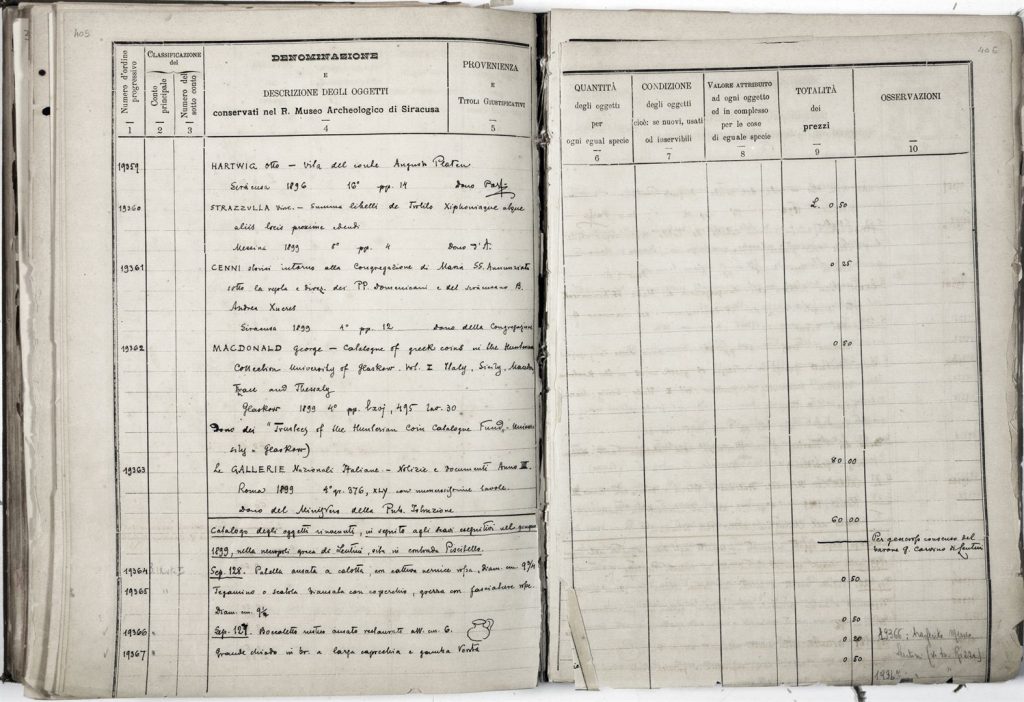 405
Numero d'ordine progressivo
1
CLASSIFICAZIONE del
Conto principale
2
Numero del sotto conto
3
DENOMINAZIONE
E
DESCRIZIONE DEGLI OGGETTI
conservati nel R. Museo Archeologico di Siracusa
4
PROVENIENZA
E
TITOLI GIUSTIFICATIVI
5
19359
HARTWIG Otto — Vita del conte Augusto Platen
Siracusa 1896 16° pp. 14 Dono
19360
STRAZZULLA Vinc. — Summa libelli de Trotilo Xiphoniaque atque
aliis locis proxime edendi
Messina 1899 8° pp. 4 Dono d'A.
19361
CENNI storici intorno alla Congregazione di Maria SS. Annunziata
sotto la regola e direz. dei PP. Domenicani e del siracusano B.
Andrea Xueres
Siracusa 1899 4° pp. 12 Dono della Congregazione
19362
MACDONALD George — Catalogue of greek coins in the Hunterian
Collection University of Glaskow. Vol. I Italy, Sicily, Maced.
Trace and Thessaly
Glaskow 1899 4° pp. 495 tav. 30
Dono dei "Trustees of the Hunterian Coin Catalogue Fund, Univer-
sity - Glaskow)
19363
Le GALLERIE Nazionali Italiane — Notizie e documenti Anno
Roma 1899 4° gr. 376, XLV con numerosissime tavole.
Dono del Ministero della Pub. Istruzione
Catalogo degli oggetti rinvenuti, in seguito agli scavi eseguitivi nel giugno
1899, nella necropoli greca di Lentini, sita in contrada Piscitello.
19364
Sep. 128. Patella ansata a calotta, con cattiva vernice rossa, Diam. cm. 9
19365 "
Tegamino o scatola biansata con coperchio, grezza con fasciature rosse.
Diam. cm. 9½
19366 "
Sep. 127. Boccaletto rustico ansato restaurato alt. cm. 6.
19367 "
Grande chiodo in br. a larga capocchia e gamba torta
406
QUANTITÀ
degli oggetti
per
ogni egual specie
6
CONDIZIONE
degli oggetti
cioè: se nuovi, usati
od inservibili
7
VALORE ATTRIBUITO
ad ogni oggetto
ed in complesso
per le cose
di eguale specie
8
TOTALITÀ
dei
prezzi
9
OSSERVAZIONI
10
L. 0 50
0 25
0 50
80 00
60 00
Per generoso consenso del
barone
0 50
0 50
0 20
19366:
0 50